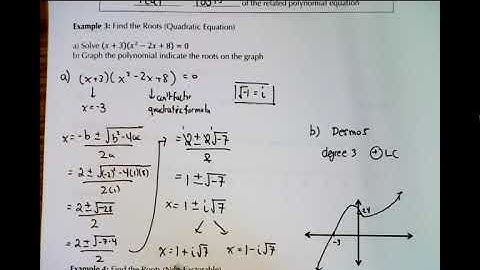 real roots of the related polynomial equation
Example 3: Find the Roots (Quadratic Equation)
a) Solve (x + 3)(x² − 2x + 8) = 0
b) Graph the polynomial indicate the roots on the graph
a) (x+3)(x² − 2x + 8) = 0
√-1 = i
↓ ↓ can't factor
x = -3 quadratic formula
x = -b ± √b² - 4ac
2a
= 2 ± √(-2)² - 4(1)(8)
2(1)
= 2 ± √-28
2
= 2 ± √-7·4
2
= 2 ± 2√-7
2
= 1 ± √-7
x = 1 ± i√7
x = 1 + i√7 x = 1 - i√7
b) Desmos
degree 3 (+) LC
24
-3
Example 4: Find the Roots (Non-Factorable)